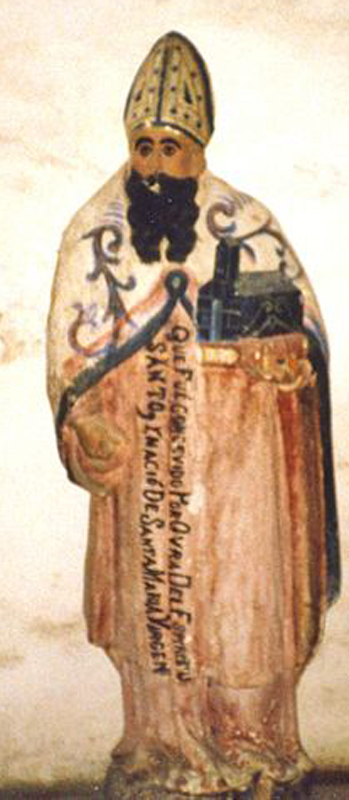 QUE FUE CONCEVIDO POR OVRA DEL ESPIRITU
SANTO Y NACIO DE SANTA MARIA VIRGEN